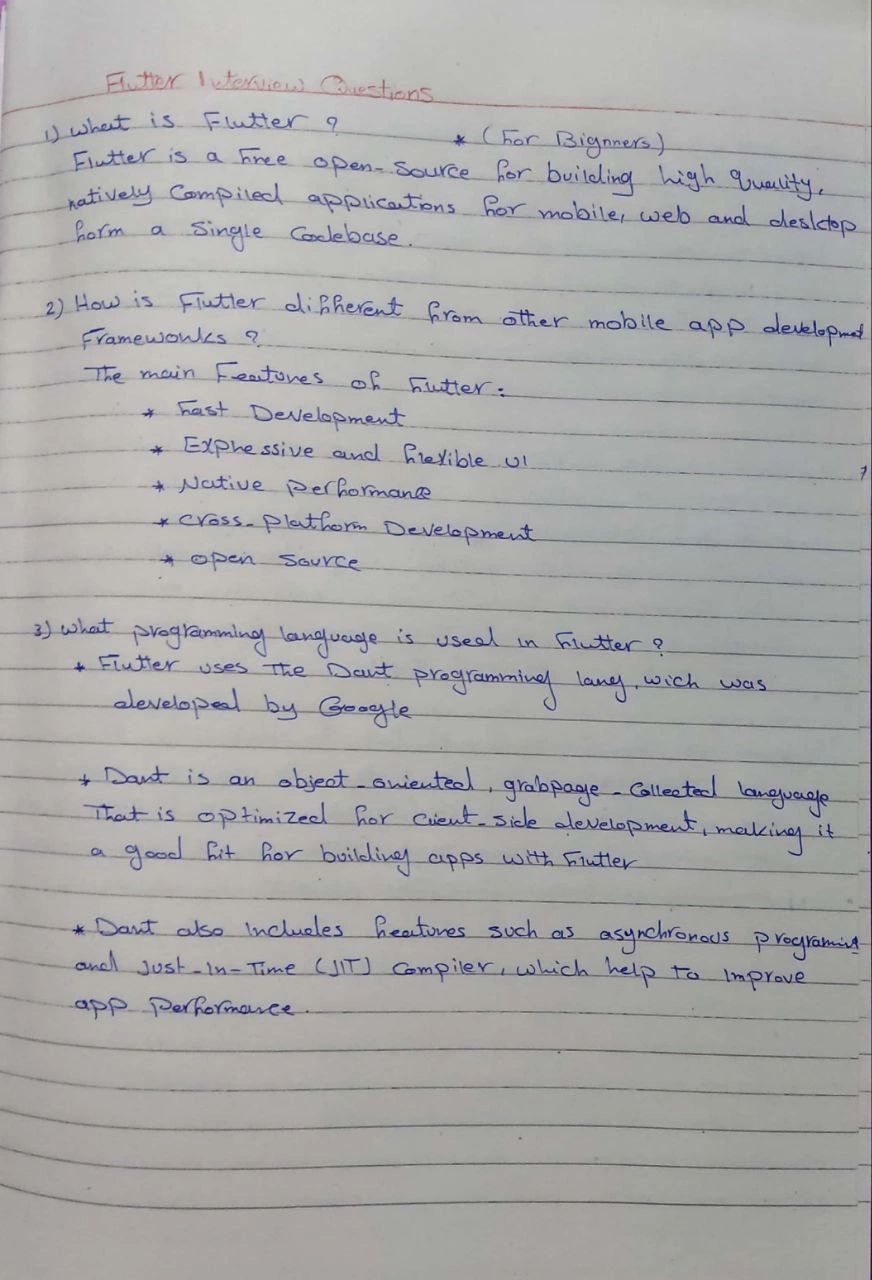 Flutter Interview Questions
1) What is Flutter ? * (For Bignners)
Flutter is a free open-source for building high quality,
natively Compiled applications for mobile, web and desktop
form a Single Codebase.
2) How is Flutter different from other mobile app development
Frameworks ?
The main Features of flutter:
* Fast Development
* Expressive and flexible UI
* Native performance
* cross-platform Development
* open source
3) What programming language is used in flutter ?
* Flutter uses the Dart programming lang, wich was
developed by Google
* Dart is an object-oriented, grabpage-Collected language
That is optimized for client-side development, making it
a good fit for building apps with flutter
* Dart also Includes features such as asynchronous programing
and Just-In-Time (JIT) Compiler, which help to Improve
app performance.